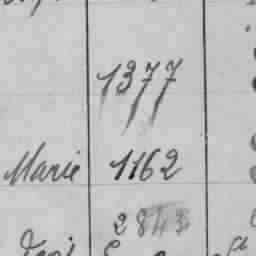 1377
Marie 1162
2843